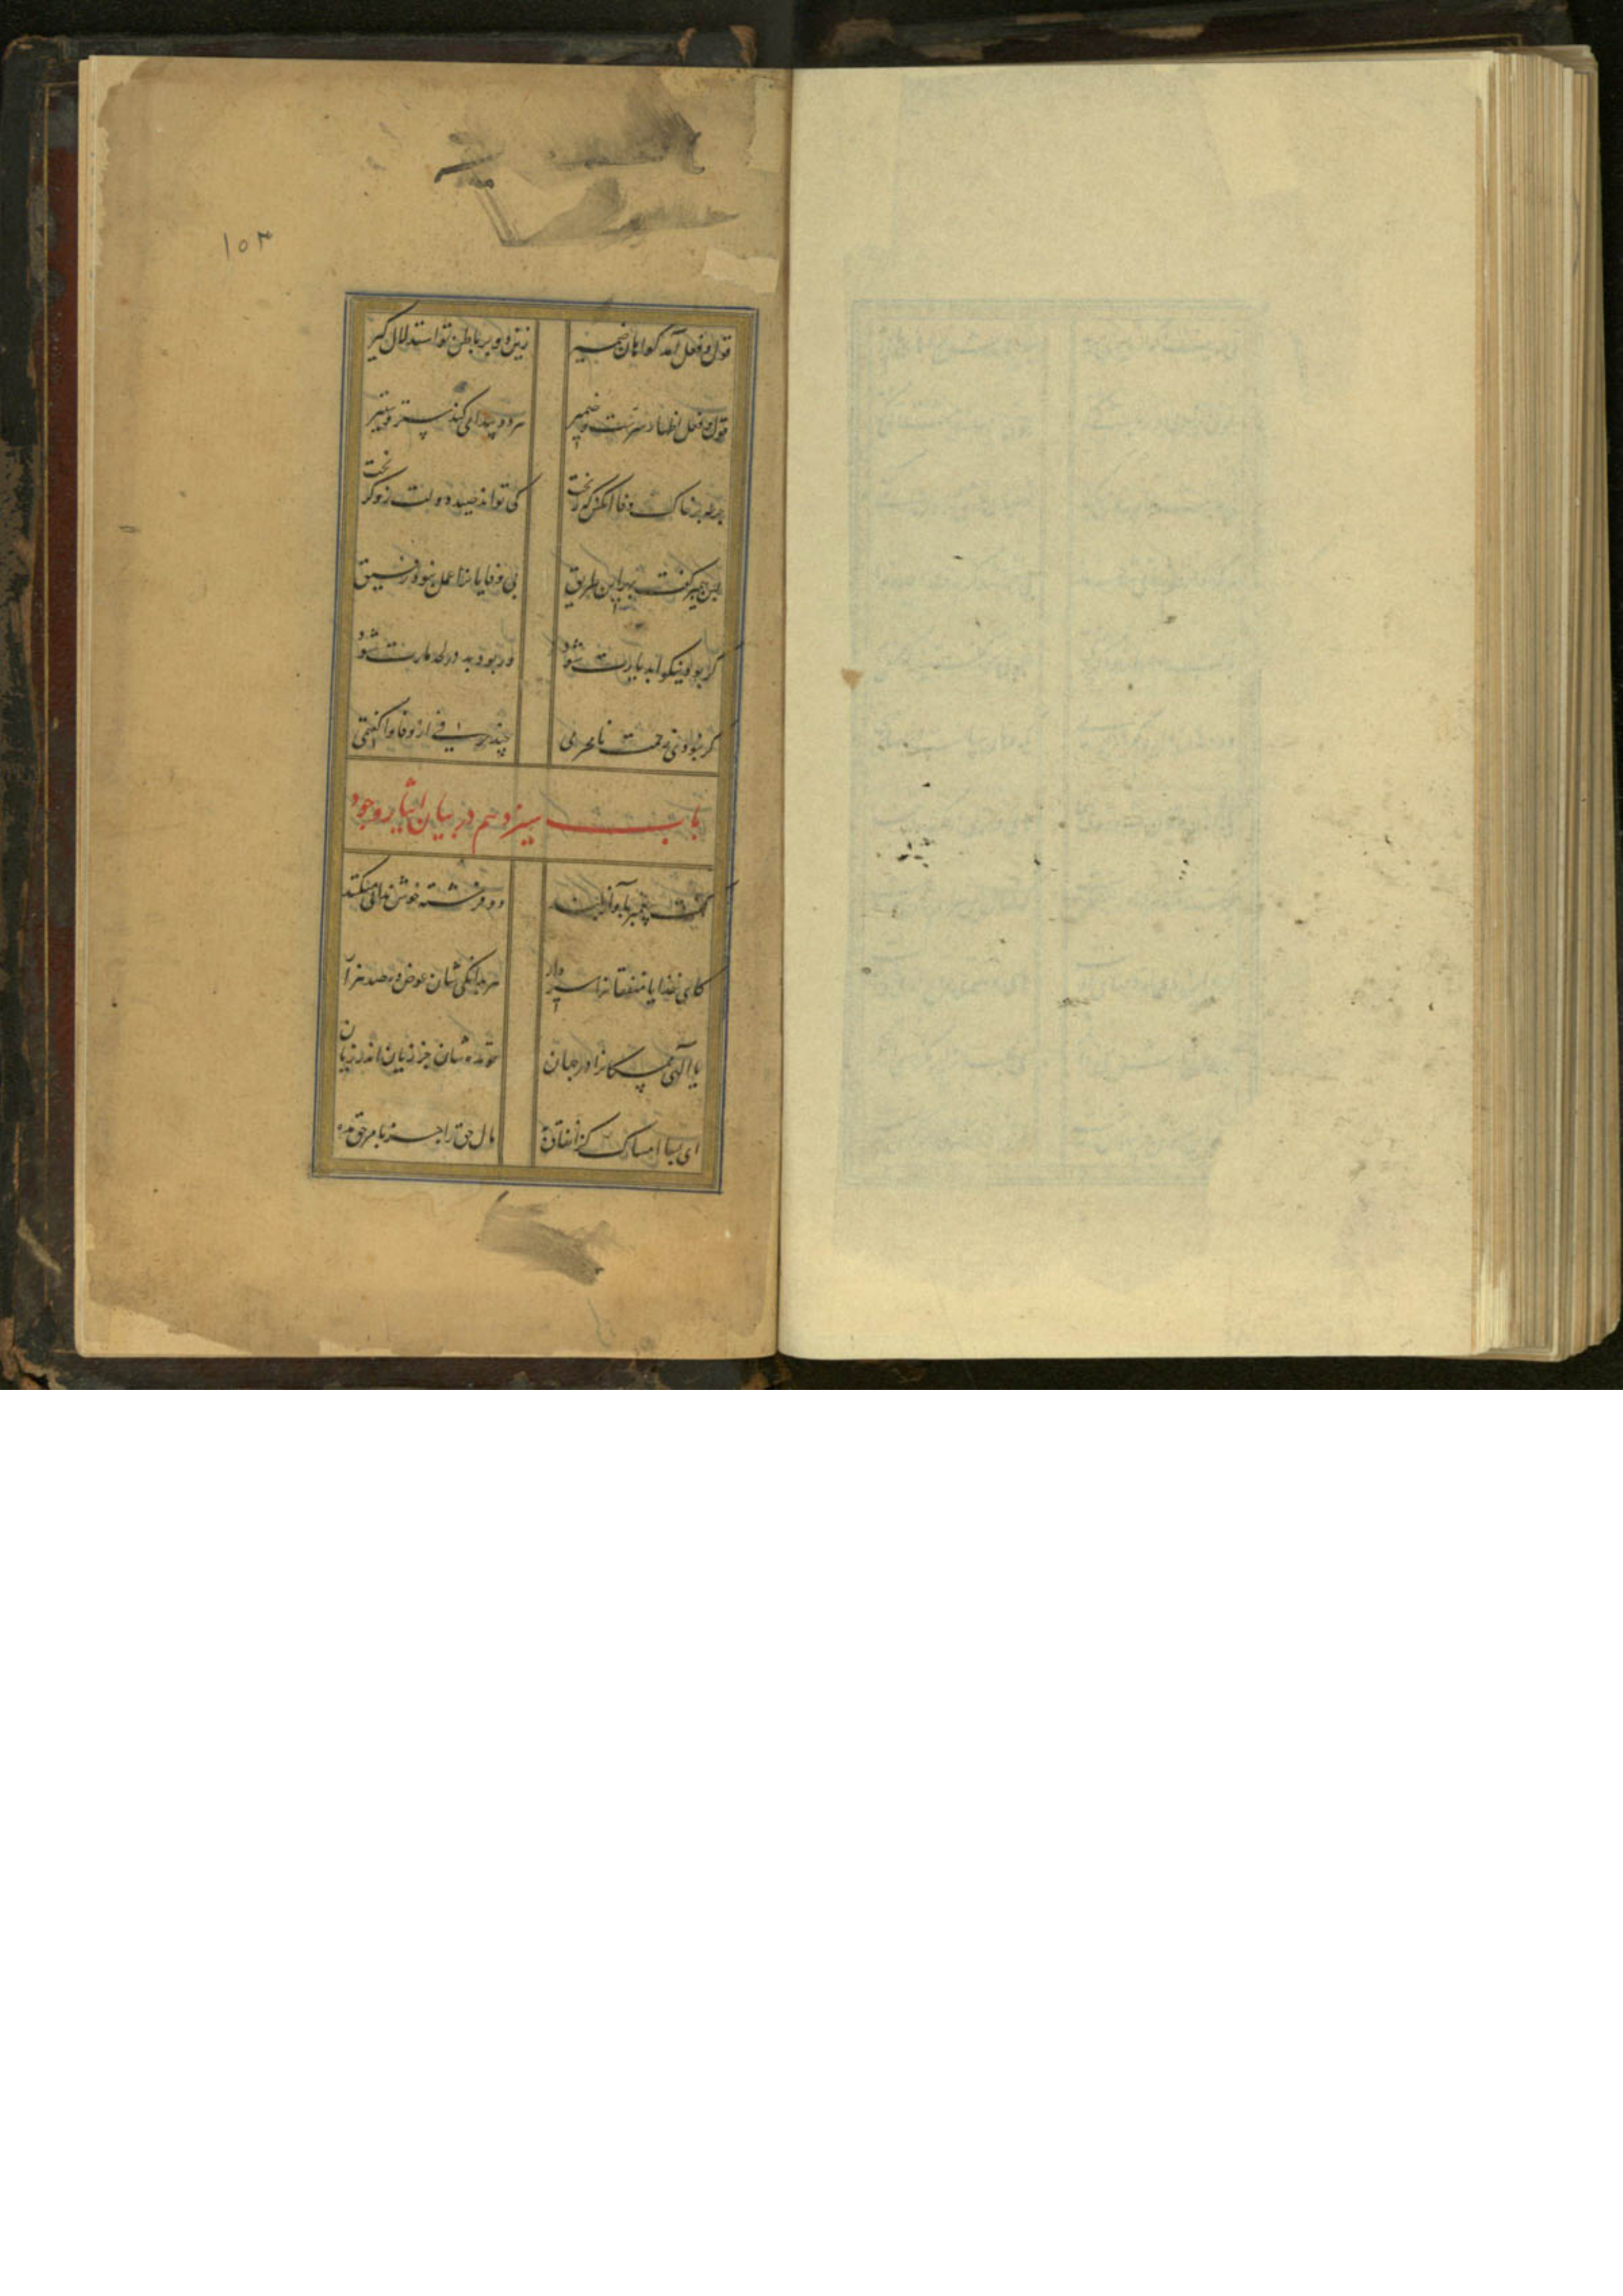 ۱۰۳
قول و فعل آمد گواهان ضمیر زین دو بر باطن تو استدلال گیر
قول و فعل اظهار سرست و ضمیر هر دو پیدا می کند سر و ستیر
جرعه بر خاک وفا آنکس که ریخت کی تواند صید دولت زو گریخت
پس پیمبر گفت بهر این طریق بی وفایان را عمل نبود رفیق
گر بود نیکو ابد یارت شود ور بود بد در لحد مارت شود
گر بنودی نامحرمی چند حرفی از وفا واگفتمی
باب سیزدهم در بیان ایثار وجود
گفت پیغمبر بآواز بلند دو فرشته خوش ندا میکند
کای خدایا منفقانرا سیر دار هر یدانکی شان عوض ده صد هزار
یا الهی ممسکانرا در جهان تو مده شان جز زیان اندر زیان
ای بسا امساک کز انفاق به مال حق را جز بامر حق مده